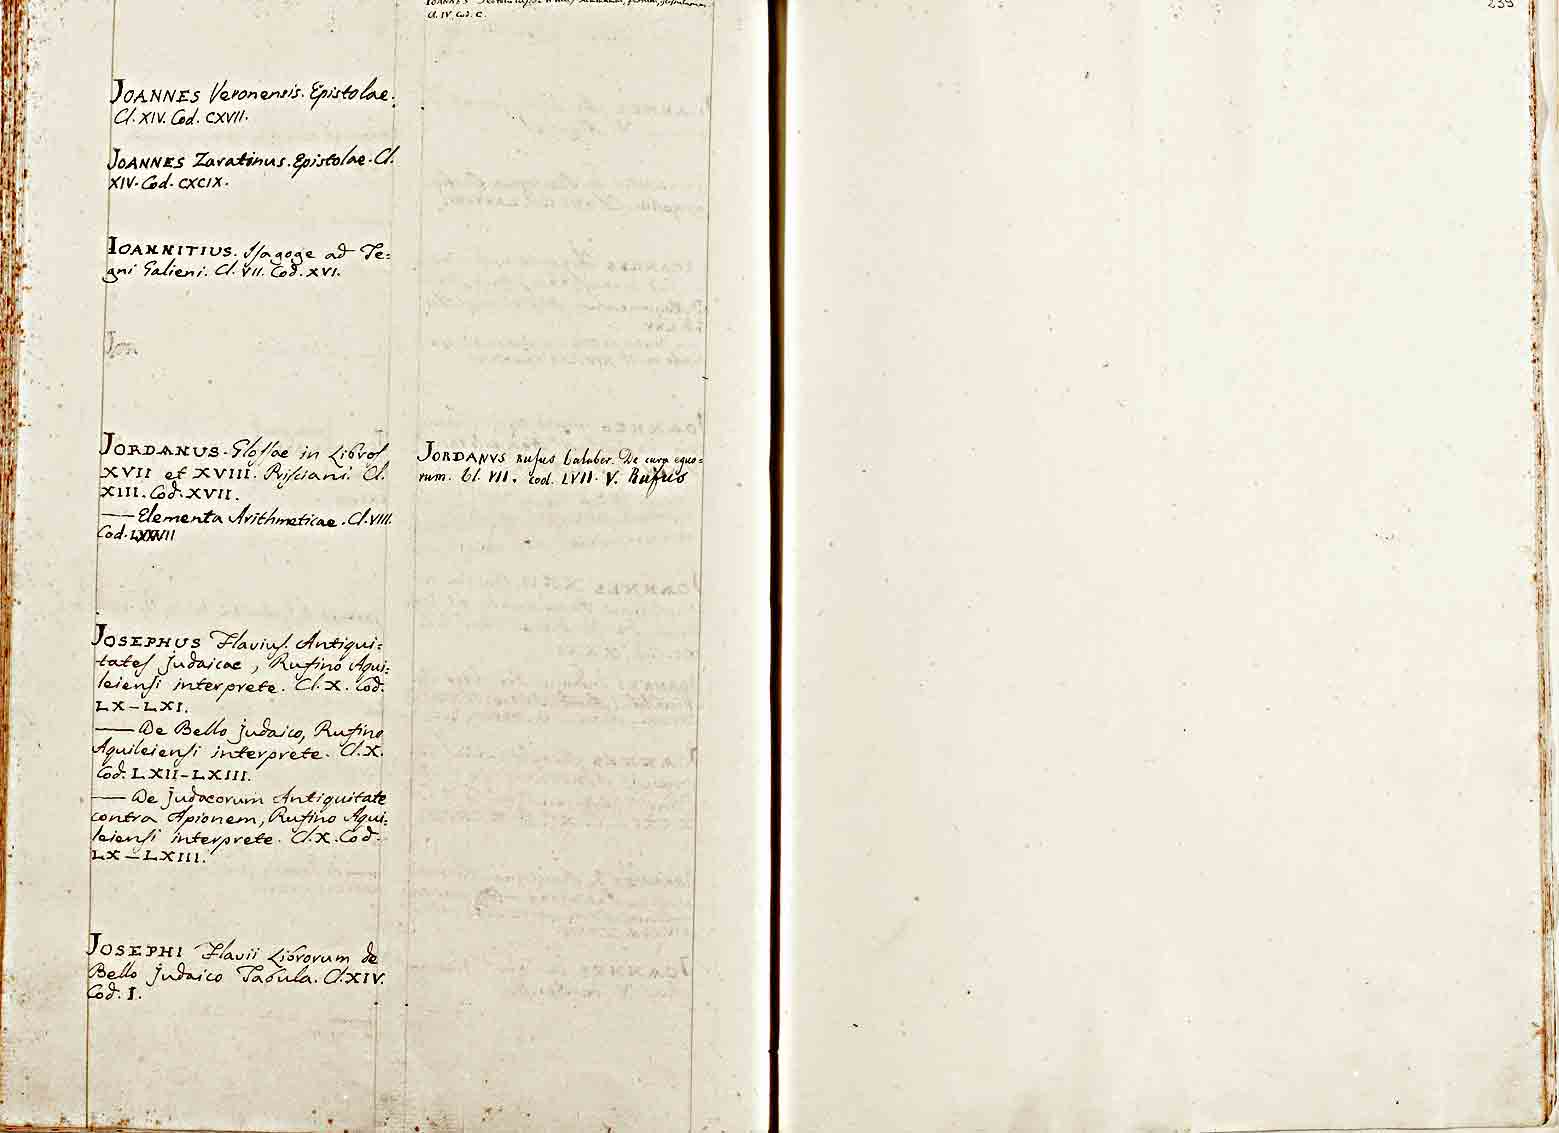 239
IOANNES
Cl. IV. Cod. C.
JOANNES Veronensis. Epistolae.
Cl. XIV. Cod. CXVII.
JOANNES Zaratinus. Epistolae. Cl.
XIV. Cod. CXCIX.
IOANNITIUS. Isagoge ad Te=
gni Galieni. Cl. VII. Cod. XVI.
Jon
JORDANUS. Glossae in Libros
XVII et XVIII. Prisciani. Cl.
XIII. Cod. XVII.
— Elementa Arithmeticae. Cl. VIII.
Cod.
JOSEPHUS Flavius. Antiqui=
tates Judaicae, Rufino Aqui=
leiensi interprete. Cl. X. Cod.
LX–LXI.
— De Bello Judaico, Rufino
Aquileiensi interprete. Cl. X.
Cod. LXII–LXIII.
— De Judaeorum Antiquitate
contra Apionem, Rufino Aqui=
leiensi interprete. Cl. X. Cod.
LX–LXIII.
JOSEPHI Flavii Librorum de
Bello Judaico Tabula. Cl. XIV.
Cod. I.
JORDANVS Rufus Calaber. De cura equo=
rum. Cl. VII. Cod. LVII. V. Rufus